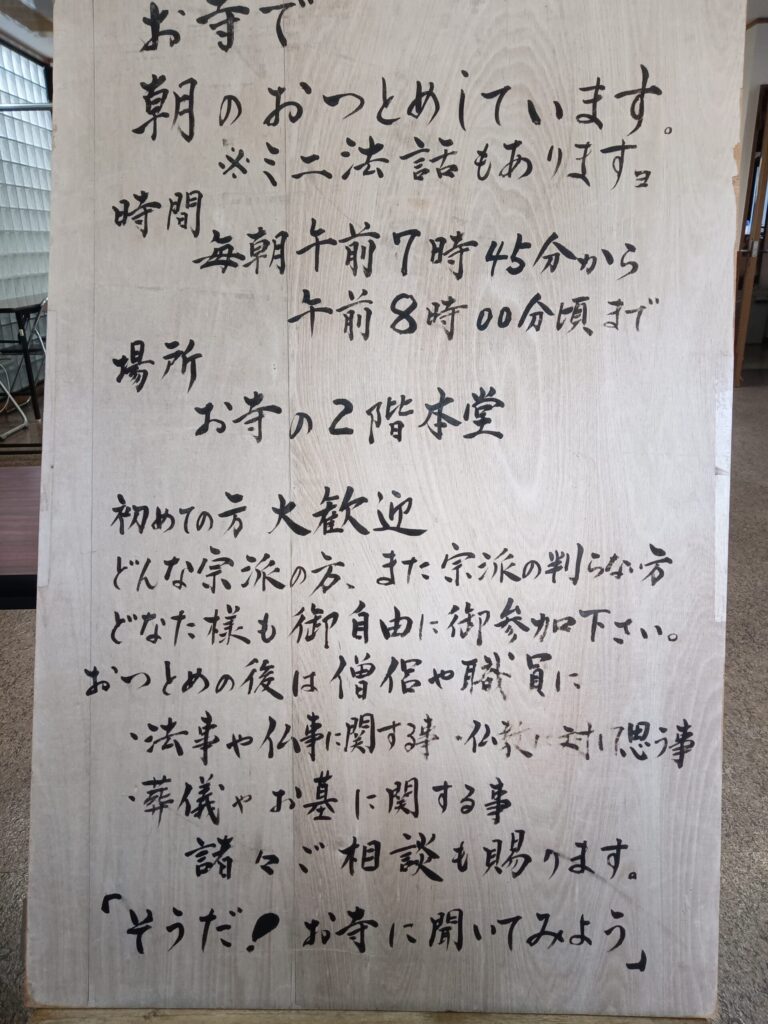 お寺で
朝のおつとめしています。
※ミニ法話もありますヨ
時間
毎朝午前7時45分から
午前8時00分頃まで
場所
お寺の2階本堂
初めての方大歓迎
どんな宗派の方、また宗派の判らない方
どなた様も御自由に御参加下さい。
おつとめの後は僧侶や職員に
・法事や仏事に関する事・仏教に対して思う事
・葬儀やお墓に関する事
諸々ご相談も賜ります。
「そうだ!お寺に聞いてみよう」